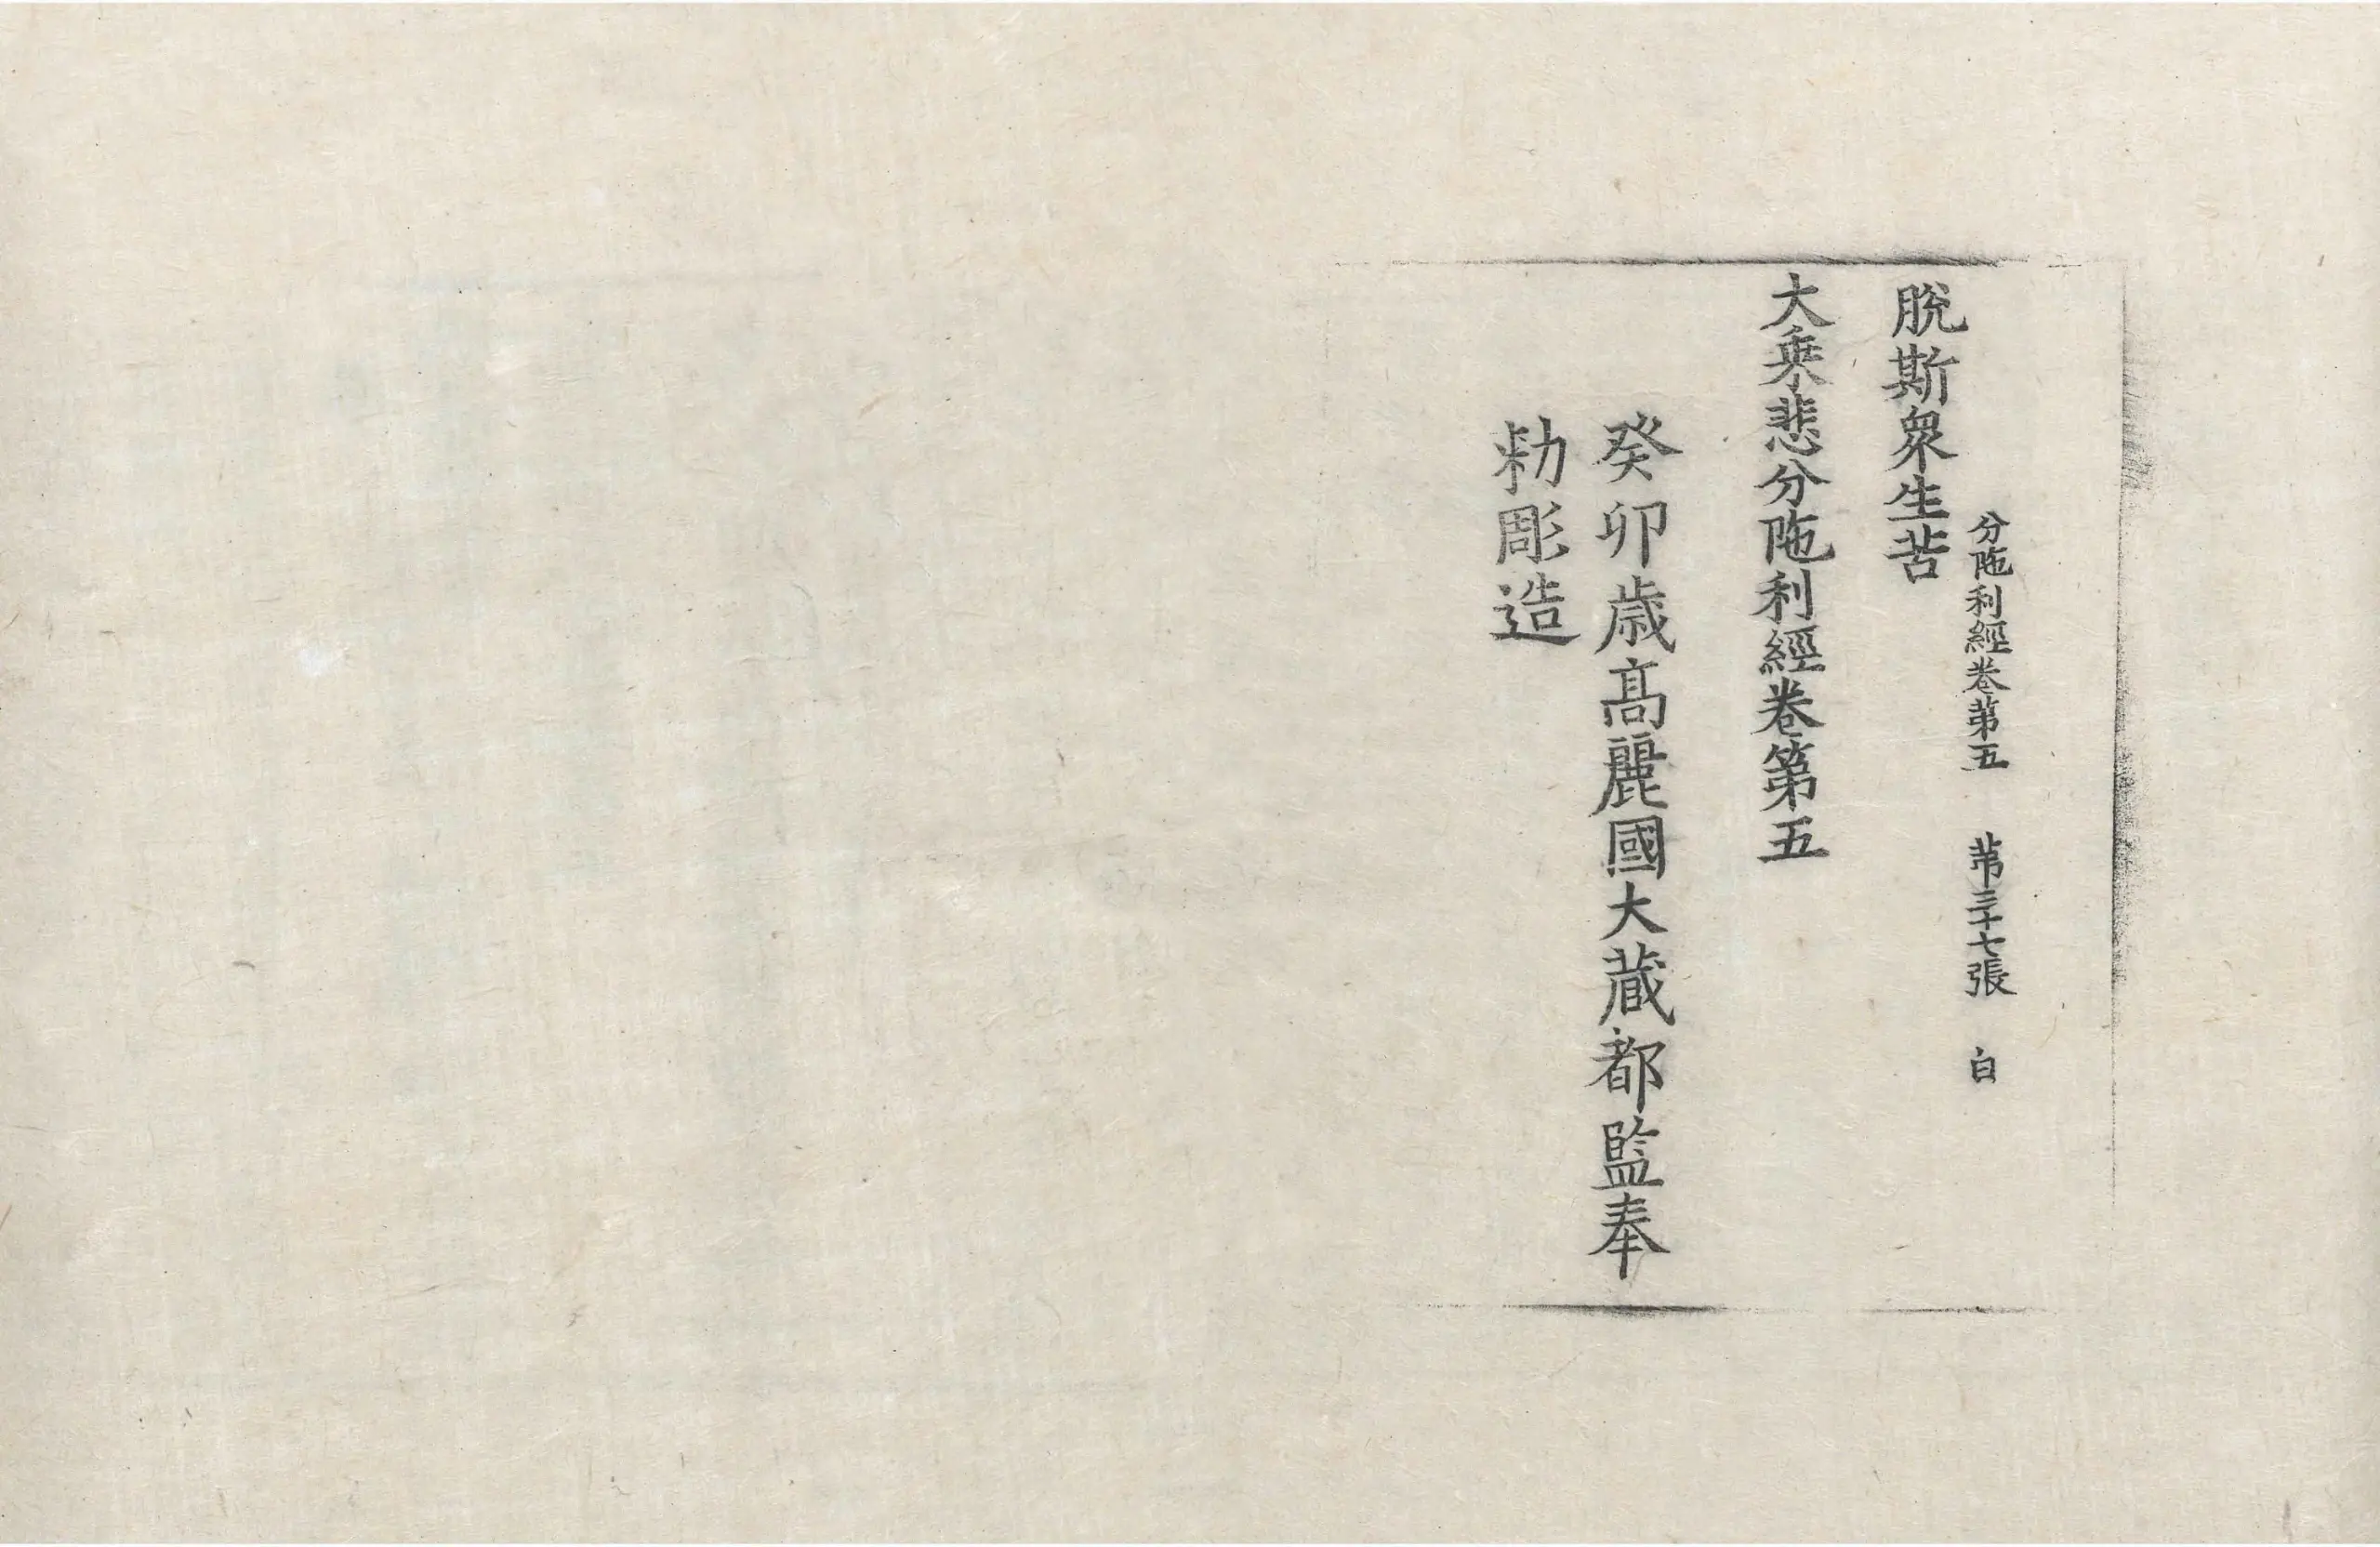 分陁利經卷第五 苐三十七張 白
脫斯衆生苦
大乗悲分陁利經卷第五
癸卯歳高麗國大藏都監奉
勑彫造